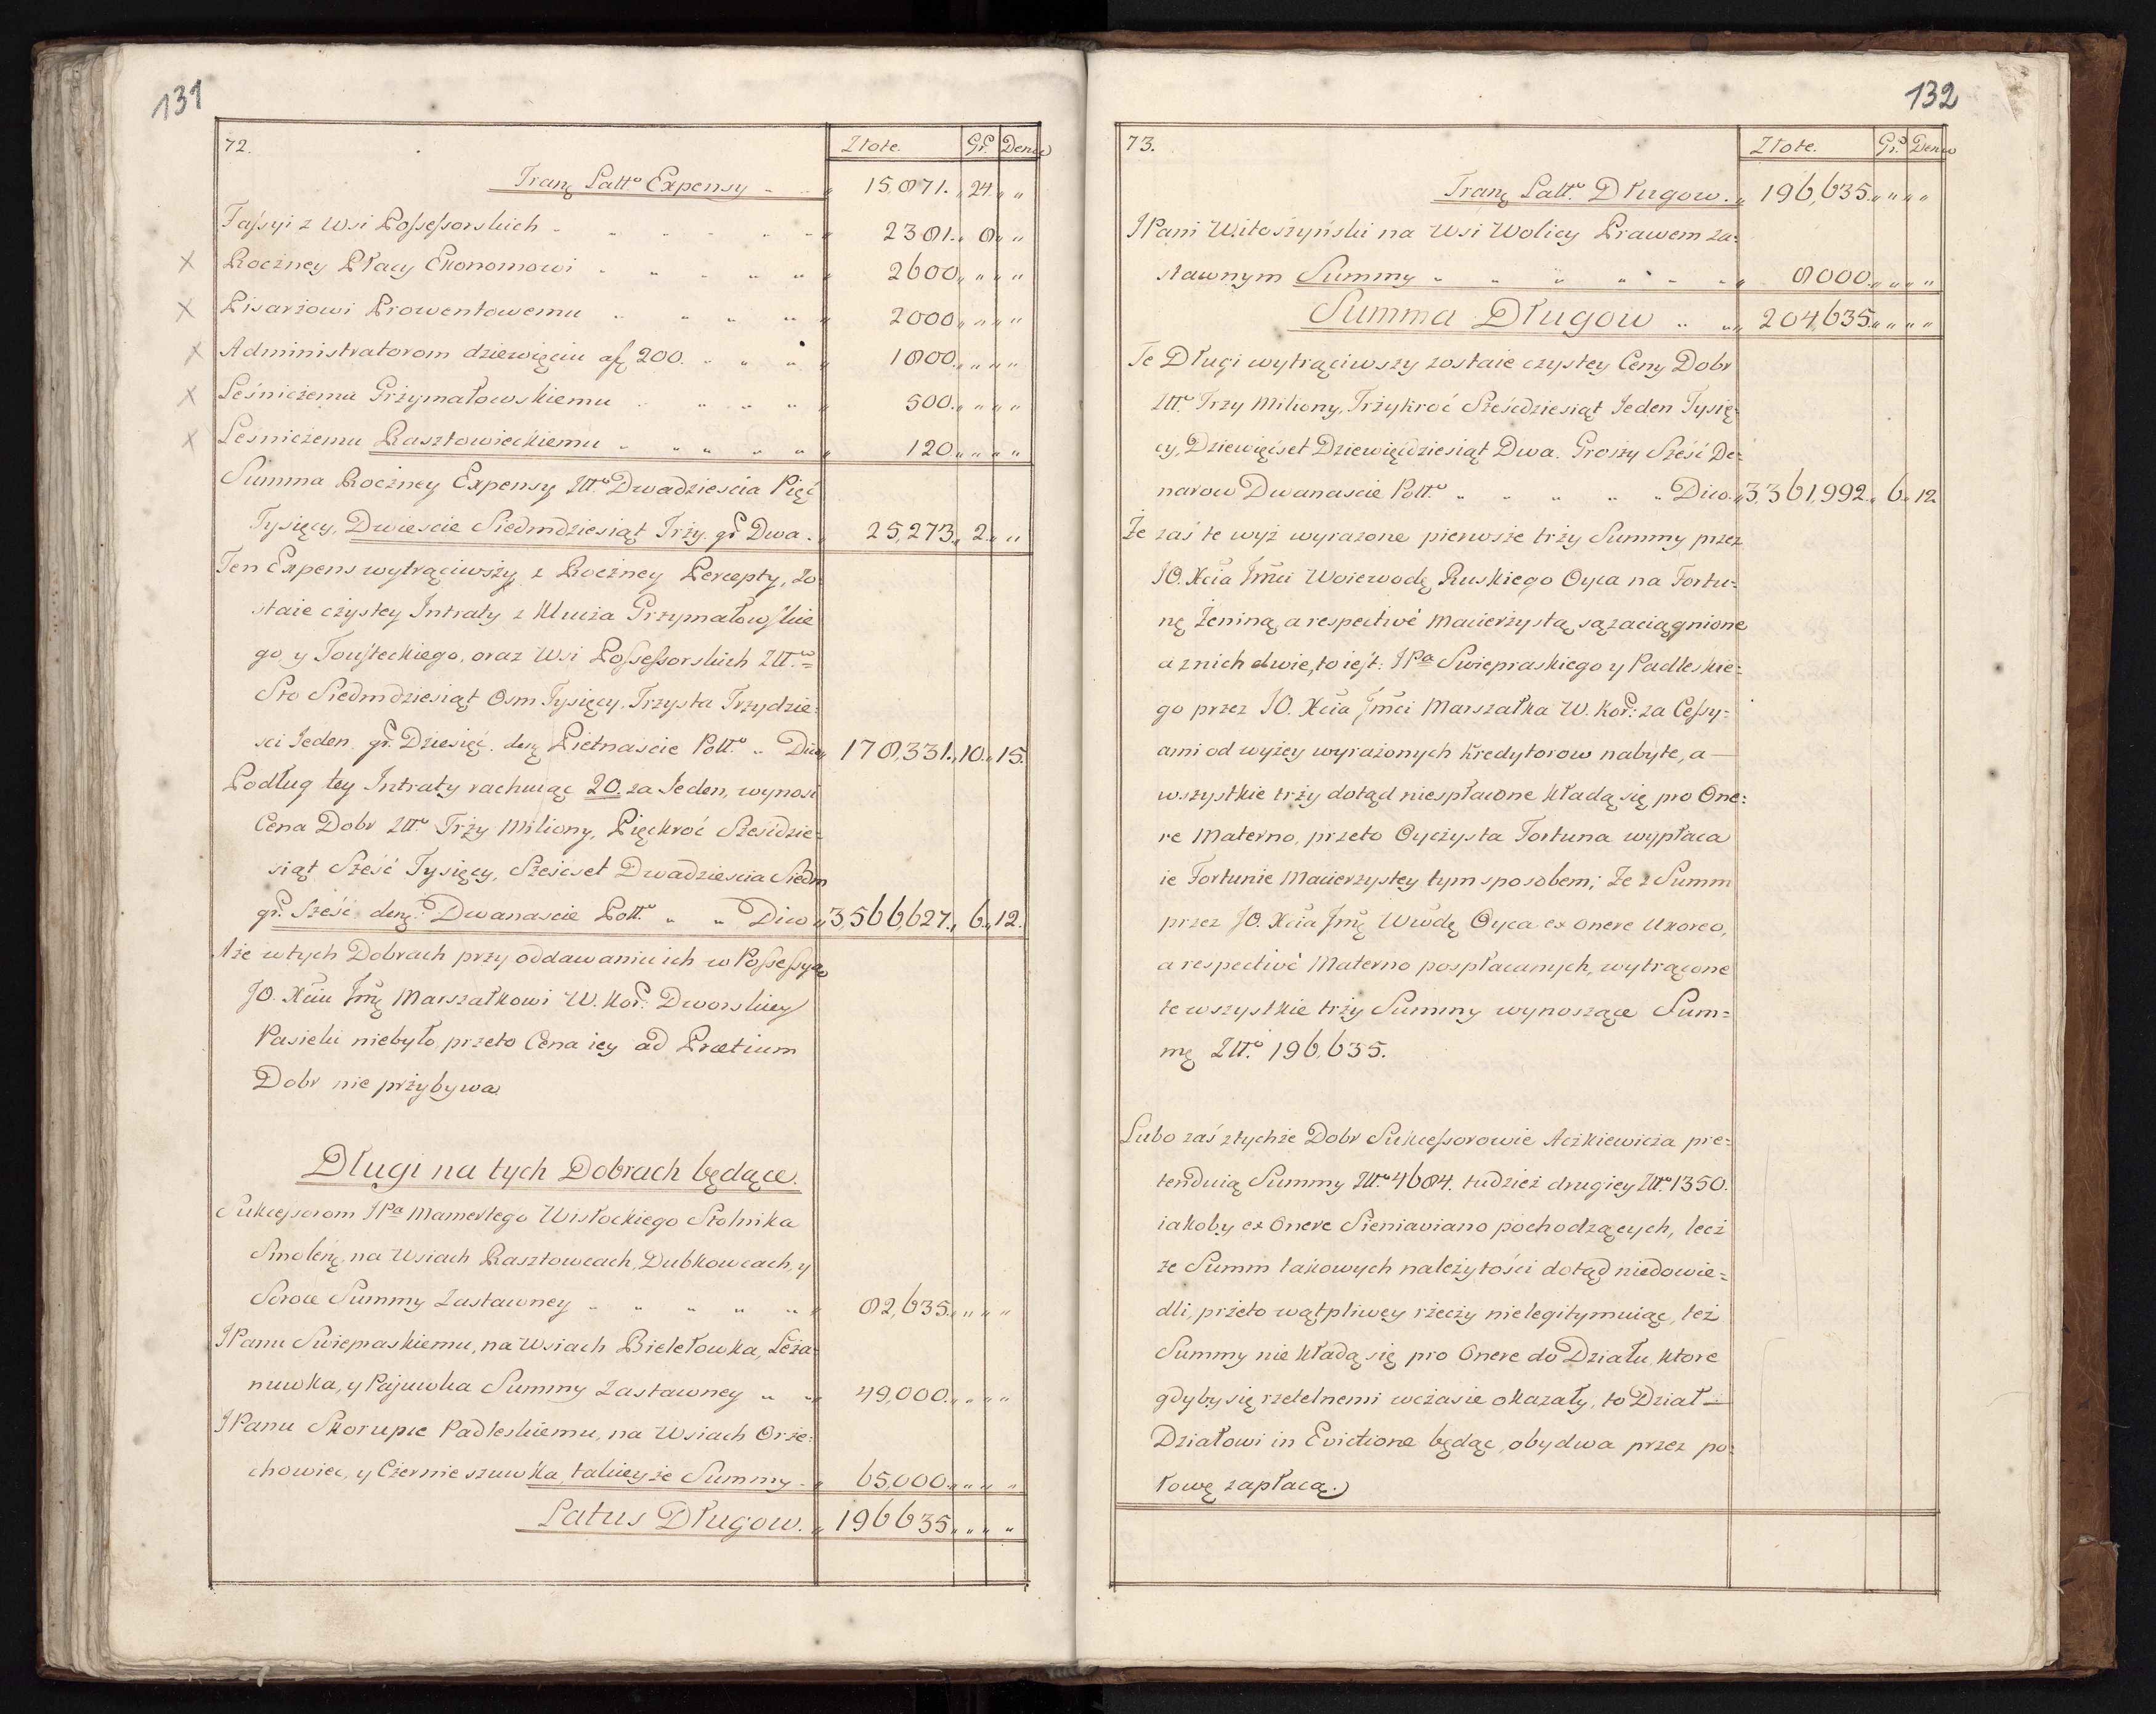 131
72. Złote. Gr. Denar
Tranş Latt.o Expensy 15,871. 24.
Fassyi z Wsi Possessorskich 2381. 8
Roczney Płacy Ekonomowi 2600
Pisarzowi Prowentowemu 2000
Administratorom dziewięciu aſş 200. 1800
Leśniczemu Grzymałowskiemu 500
Leśniczemu Rasztowieckiemu 120
Summa Roczney Expensy Złł.o Dwadziescia Pięć
Tysięcy, Dwieście Siedmdziesiąt Trzy. gr Dwa 25,273. 2.
Ten Expens wytrąciwszy z Roczney Percepty, zo=
staie czystey Intraty z Klucza Grzymałowskie
go y Tousteckiego, oraz Wsi Possessorskich Złł.o=
Sto Siedmdziesiąt Osm Tysięcy, Trzysta Trzydzie=
sci Jeden gr. Dziesięć. denş Pietnascie Poll.o Dico 178,331. 10. 15.
Podług tey Intraty rachuiąc 20. za Jeden, wynosi
Cena Dobr Złł.o Trzy Miliony, Pięćkroć Sześćdzie=
siąt Sześć Tysięcy, Sześćset Dwadziescia Siedm
gr. Sześć denş. Dwanascie Poll.o Dico 3,566,627. 6. 12.
A że w tych Dobrach przy oddawaniu ich w Possessyą
JO. Xciu Jmş Marszałkowi W. Kor. Dworskiey
Pasieki niebyło, przeto Cena iey ad Prætium
Dobr nie przybywa.
Długi na tych Dobrach będące.
Sukcessorom JPa Mamertego Wisłockiego Stolnika
Smoleńş. na Wsiach Rasztowcach, Dubkowcach, y
Soroce Summy Zastawney 82,635.
JPanu Swiepraskiemu, na Wsiach Bieletowka, Leża=
nuwka, y Pajuwka Summy Zastawney 49,000.
JPanu Skorupce Padleskiemu, na Wsiach Orze=
chowiec, y Czernieszuwka, takieyże Summy 65,000.
Latus Długow. 196635.
132
73. Złote. Gr. Denar
Tranş Latt.o Długow. 196,635.
JPani Witoszyński na Wsi Wolicy Prawem za=
stawnym Summy 8000.
Summa Długow 204,635.
Te Długi wytrąciwszy zostaie czystey Ceny Dobr
Złł.o Trzy Miliony, Trzykroć Sześćdziesiąt Jeden Tysię=
cy, Dziewięćset Dziewięćdziesiąt Dwa. Groszy Sześć De=
narow Dwanascie Poll.o Dico 3,361,992. 6. 12
Że zaś te wyż wyrazone pierwsze trzy Summy przez
JO. Xcia Jmci Woiewodę Ruskiego Oyca na Fortu=
nę Żeniną, a respectivè Macierzystą, są zaciągnione
a z nich dwie, to iest: JPa Swiepraskiego y Padleskie=
go przez JO. Xcia Jmci Marszałka W. Kor: za Cessy=
ami od wyżey wyrażonych Kredytorow nabyte, a —
wszystkie trzy dotąd niespłacone kładą się pro One=
re Materno, przeto Oyczysta Fortuna wypłaca
ie Fortunie Macierzystey tym sposobem; Że z Summ
przez JO. Xcia Jmş Wwdę Oyca ex onere Uxoreo,
a respectivè Materno pospłacanych, wytrącone
te wszystkie trzy Summy wynoszące Sum=
mę Złł.o 196,635.
Lubo zaś z tychże Dobr Sukcessorowie Aczkiewicza pre=
tenduią Summy Złł.o 4684. tudzież drugiey Złł.o 1350.
iakoby ex Onere Sieniaviano pochodzących, lecz
że Summ takowych należytości dotąd niedowie=
dli, przeto wątpliwey rzeczy nielegitymuiąc, też
Summy nie kładą się pro Onere do Działu, ktore
gdyby się rzetelnemi wczasie okazały, to Dział —
Działowi in Evictione będąc, obydwa przez po=
łowę zapłacą.